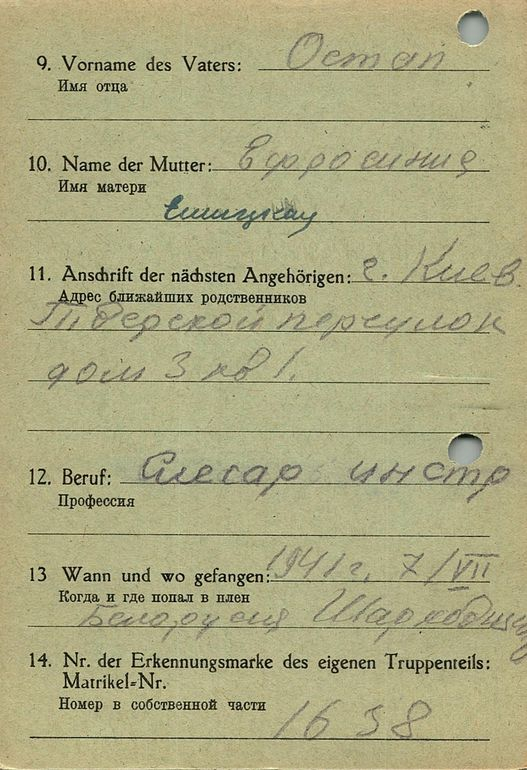 9. Vorname des Vaters: Остап
Имя отца
10. Name der Mutter: Ефросиния
Имя матери
11. Anschrift der nächsten Angehörigen: г. Киев.
Адрес ближайших родственников
Тверской переулок
дом 3 кв 1.
12. Beruf: Слесар инстр
Профессия
13 Wann und wo gefangen: 1941 г. 7/VII
Когда и где попал в плен
Белорусия
14. Nr. der Erkennungsmarke des eigenen Truppenteils:
Matrikel-Nr.
Номер в собственной части
1638